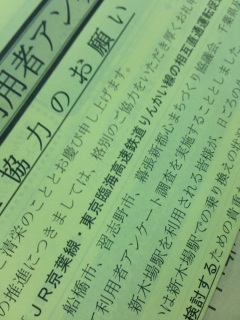 利用者アン
協力のお願い
清栄のこととお慶び申し上げます。
の推進につきましては、格別のご協力をいただき厚くお礼申
JR京葉線・東京臨海高速鉄道りんかい線の相互直通運転
船橋市、習志野市、幕張新都心まちづくり協議会、千葉県
利用者アンケート調査を実施することとしました。
新木場駅を利用される皆様が、日ごろの
は新木場駅での乗り換えの
検討するための貴重